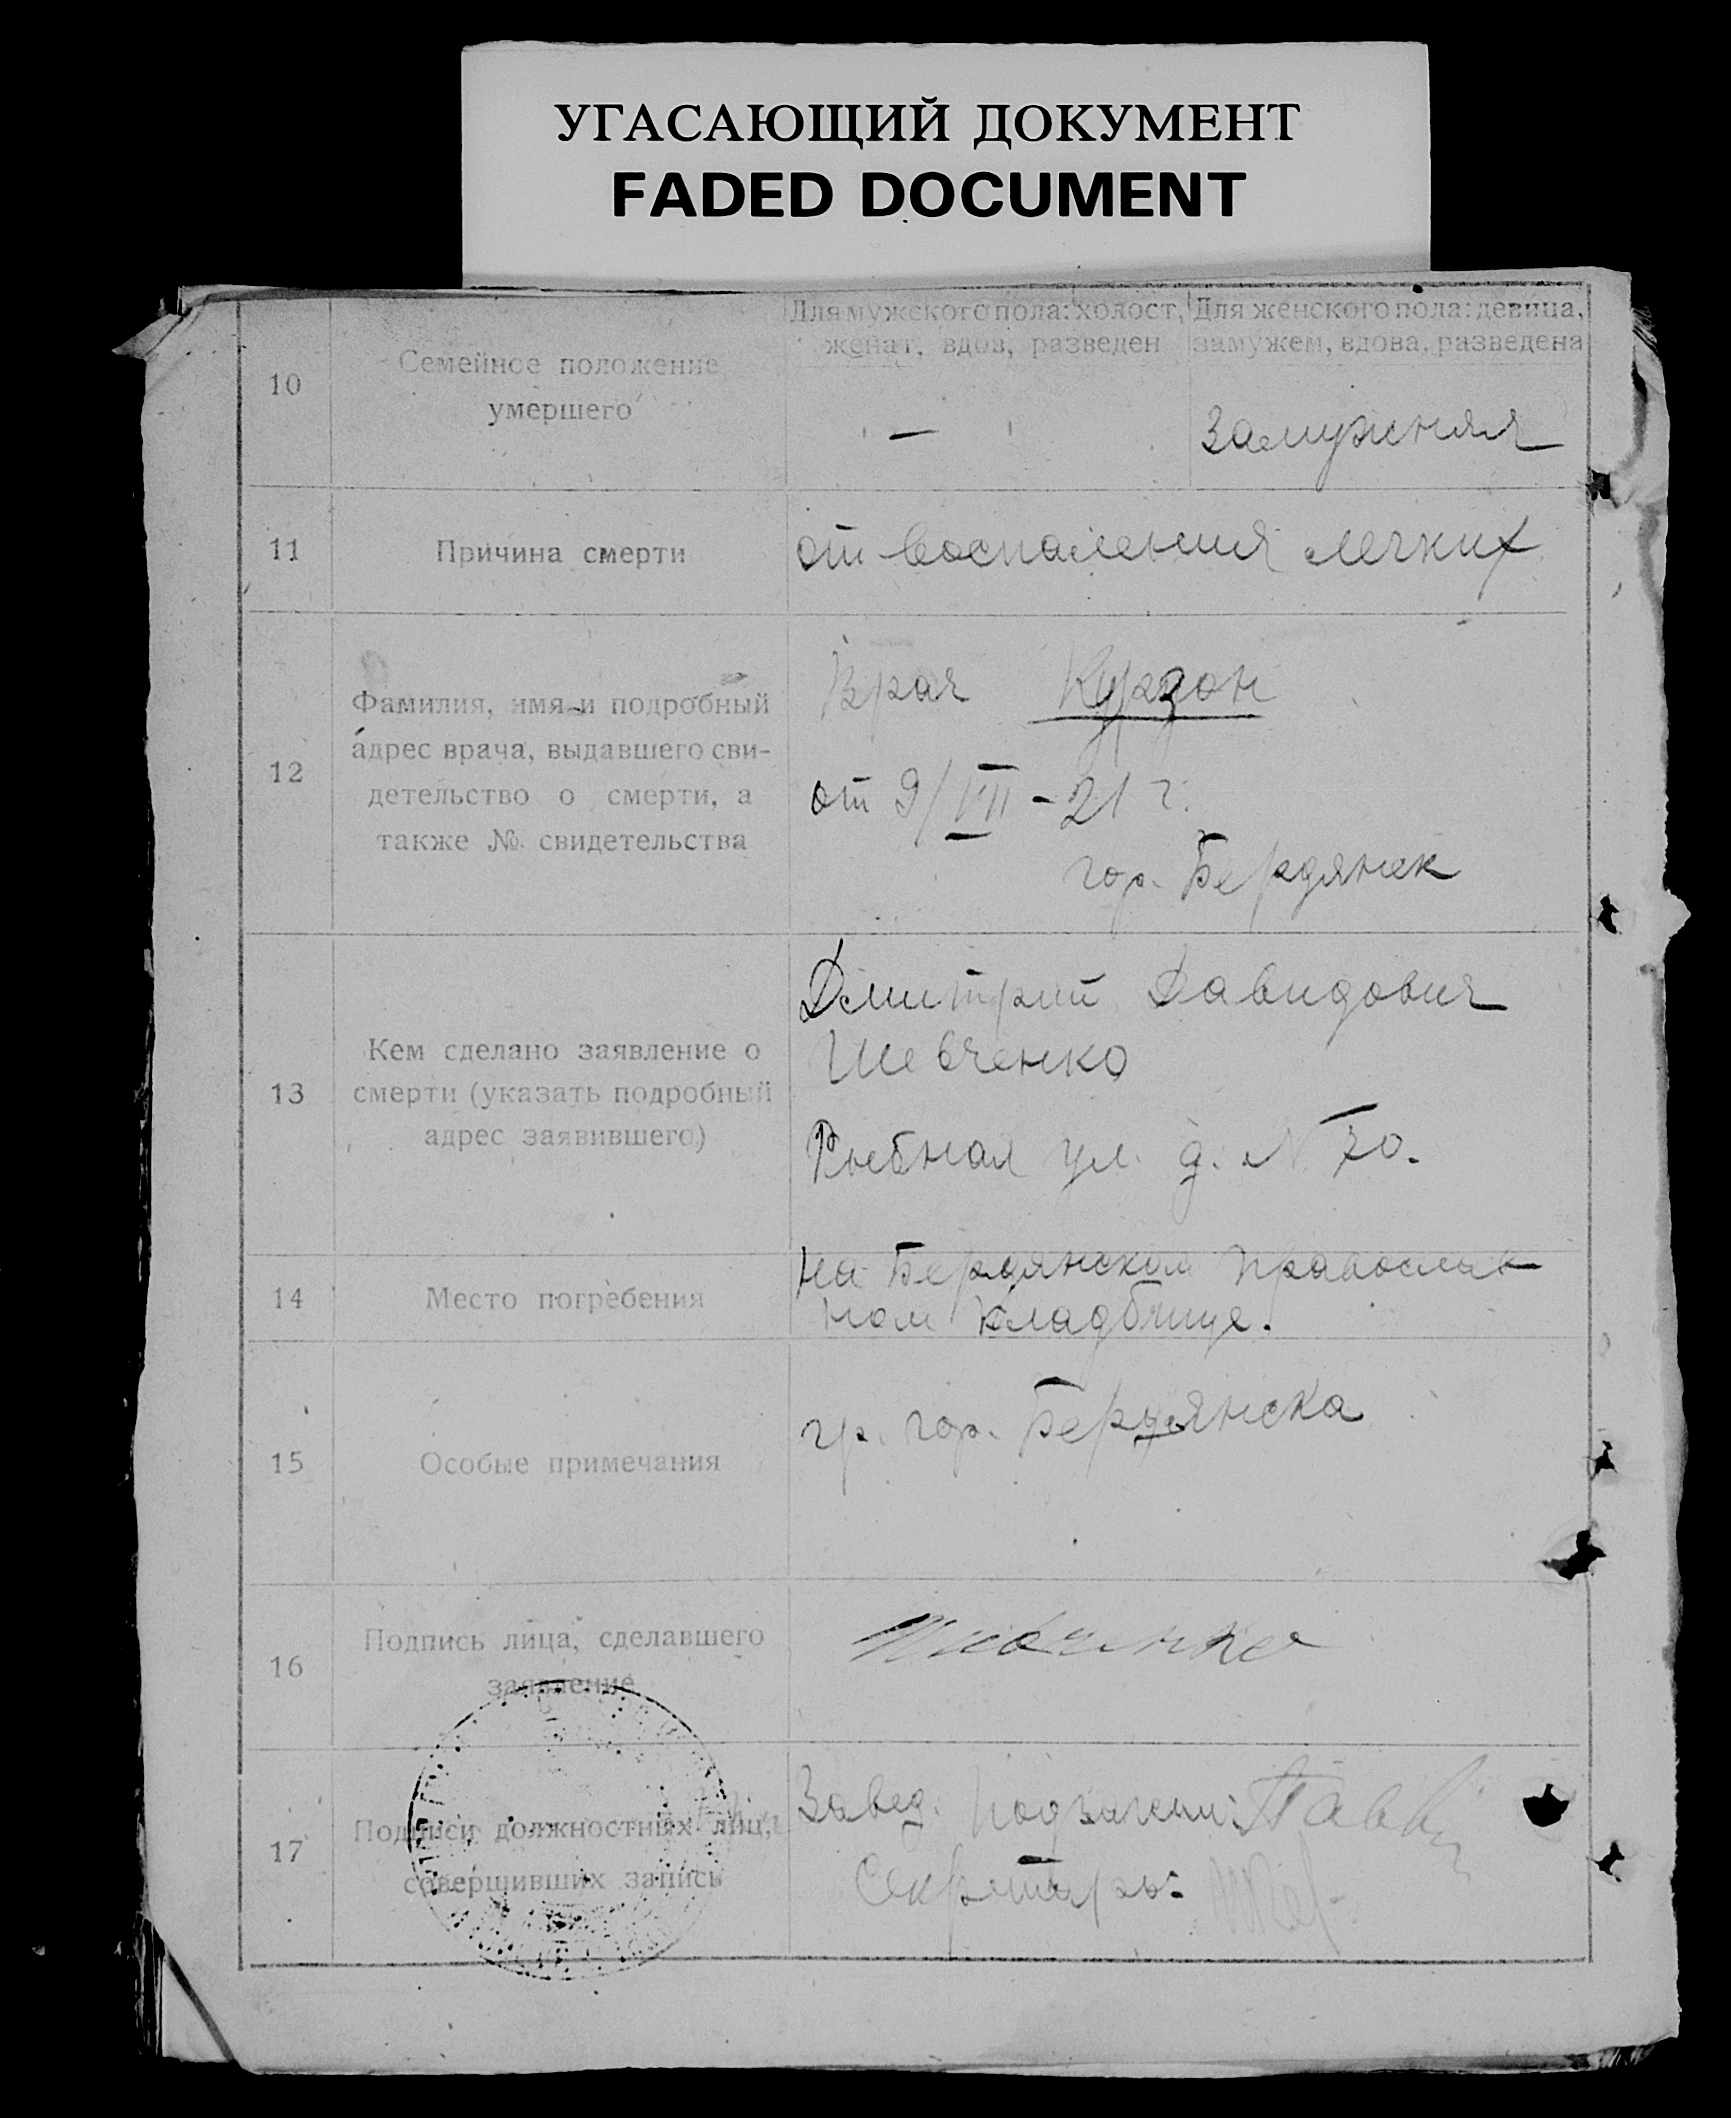 УГАСАЮЩИЙ ДОКУМЕНТ
FADED DOCUMENT
10
Семейное положение
умершего
Для мужского пола: холост,
женат, вдов, разведен
Для женского пола: девица,
замужем, вдова, разведена
—
Замужняя
11
Причина смерти
от воспаления легких
12
Фамилия, имя и подробный
адрес врача, выдавшего сви-
детельство о смерти, а
также №. свидетельства
Врач Курзон
от 9/VII - 21 г.
гор. Бердянск
13
Кем сделано заявление о
смерти (указать подробный
адрес заявившего)
Дмитрий Давидович
Шевченко
Рыбная ул. д. N 70.
14
Место погребения
на Бердянском православ
ном кладбище.
15
Особые примечания
гр. гор. Бердянска
16
Подпись лица, сделавшего
заявление
Шевченко
17
Подписи должностных лиц,
совершивших запись
Завед.
Секретарь: